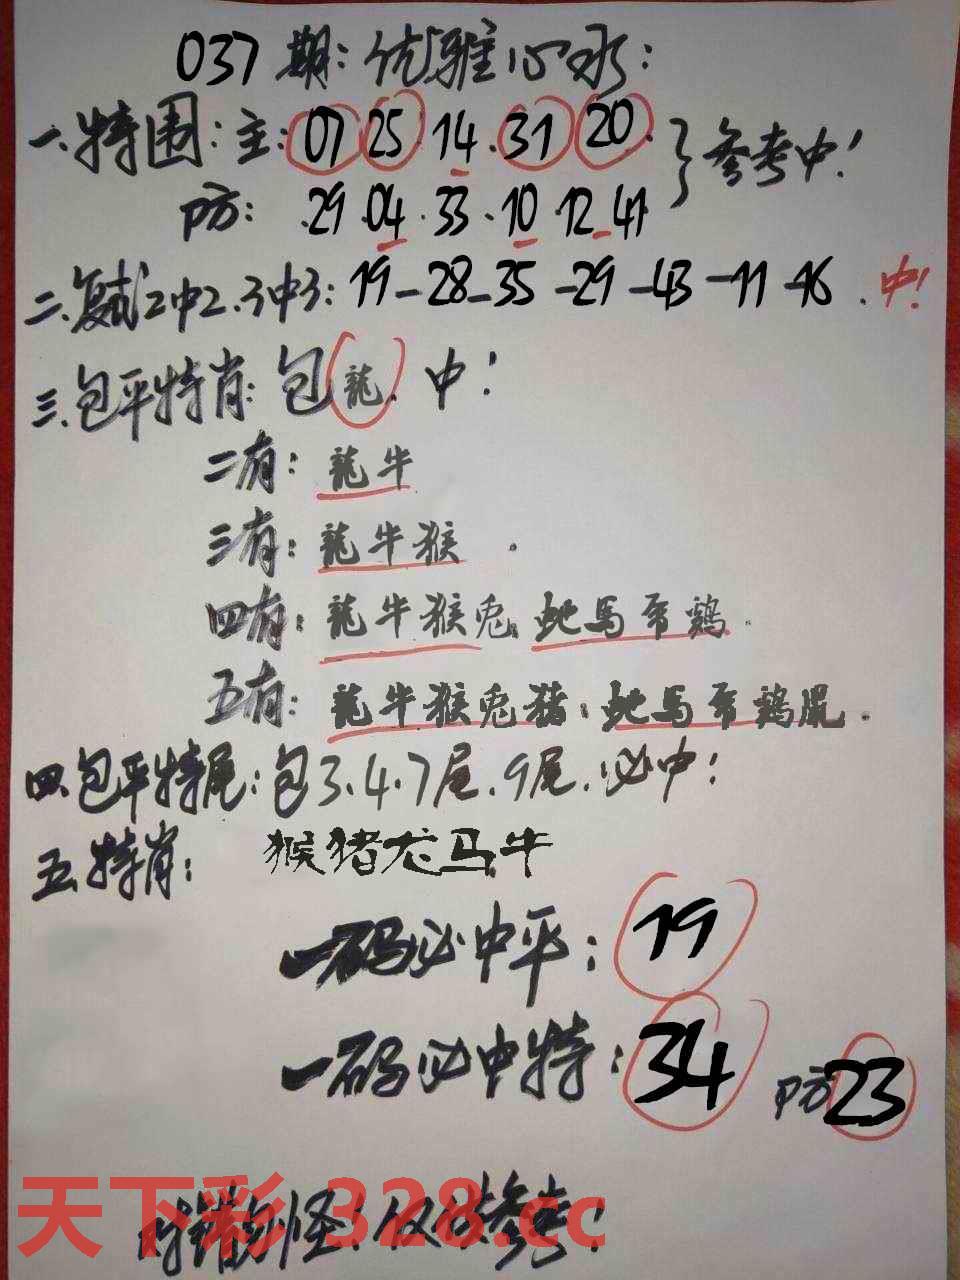 037期:优雅心水:
一.特围:主:07 25 14.31 20. 参考中!
防:.29.04.33.10.12.41
二.复式2中2.3中3:19-28-35-29-43-11-16.中!
三.包平特肖:包龍.中!
二有:龍牛
三有:龍牛猴.
四有:龍牛猴兎 蛇馬帝鷄.
五有:龍牛猴兎猪:蛇馬帝鷄鼠.
四.包平特尾:包3.4.7尾.9尾.必中!
五.特肖:猴猪龙马牛
一码必中平:19
一码必中特:34 防23
对错勿怪!仅供参考!
天下彩 328.cc